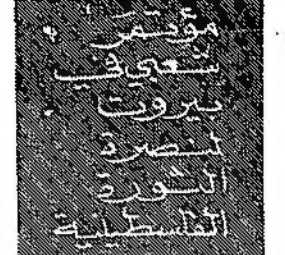 مؤتمر
شعبي في
بيروت
لنصرة
الثورة
الفلسطينية